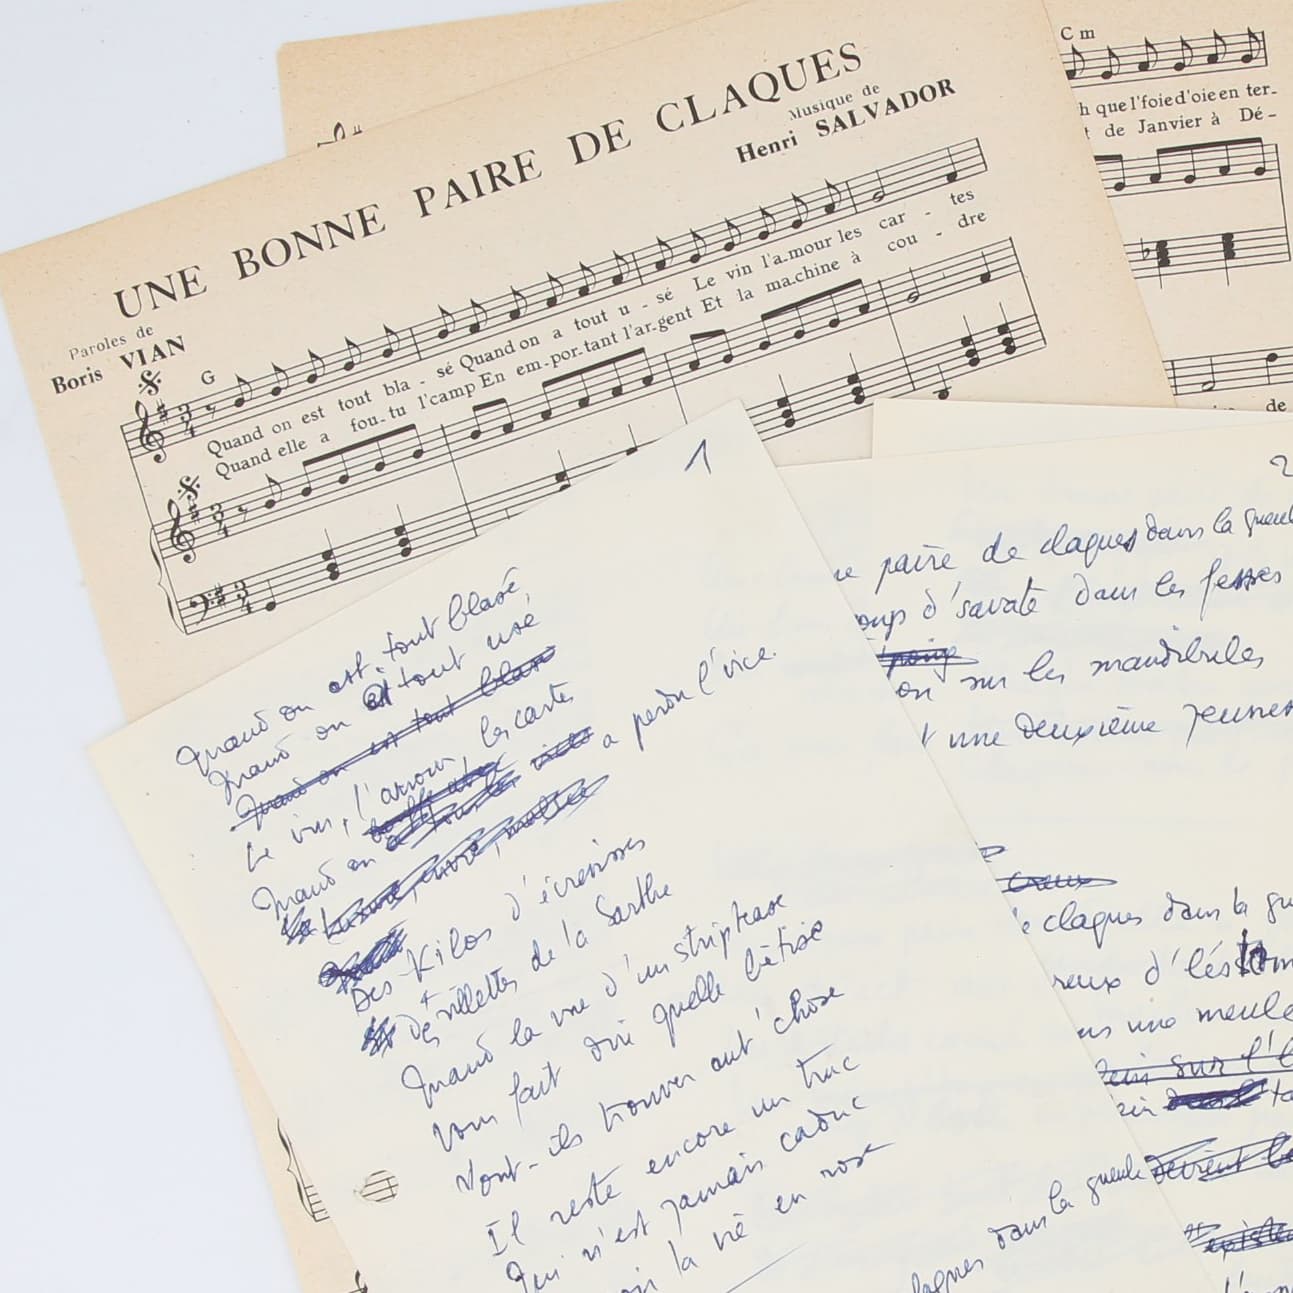 UNE BONNE PAIRE DE CLAQUES
Paroles de
Boris VIAN
Musique de
Henri SALVADOR
G
Quand on est tout bla - sé Quand on a tout u - sé Le vin l'a-mour les car - tes
Quand elle a fou-tu l'camp En em-por-tant l'ar-gent Et la ma-chine à cou - dre
C m
h que l'foie d'oie en ter-
t de Janvier à Dé -
de
1
Quand on est tout blasé,
Quand on a tout usé
Quand on est tout blasé
Le vin, l'amour, les cartes
Quand on a perdu l'vice
Des kilos d'écrevisses
Des rillettes de la Sarthe
Quand la vue d'un striptease
Vous fait dire quelle bêtise
Vont-ils trouver aut'chose
Il reste encore un truc
Qui n'est jamais caduc
la vie en rose
2
ne paire de claques dans la gueule
oups d'savate dans les fesses
poing
on sur les mandibules
t une deuxième jeunes
creux
de claques dans la gu
reux d'l'estom
ns une meule
sur l'
devient
claques dans la gueule
existe